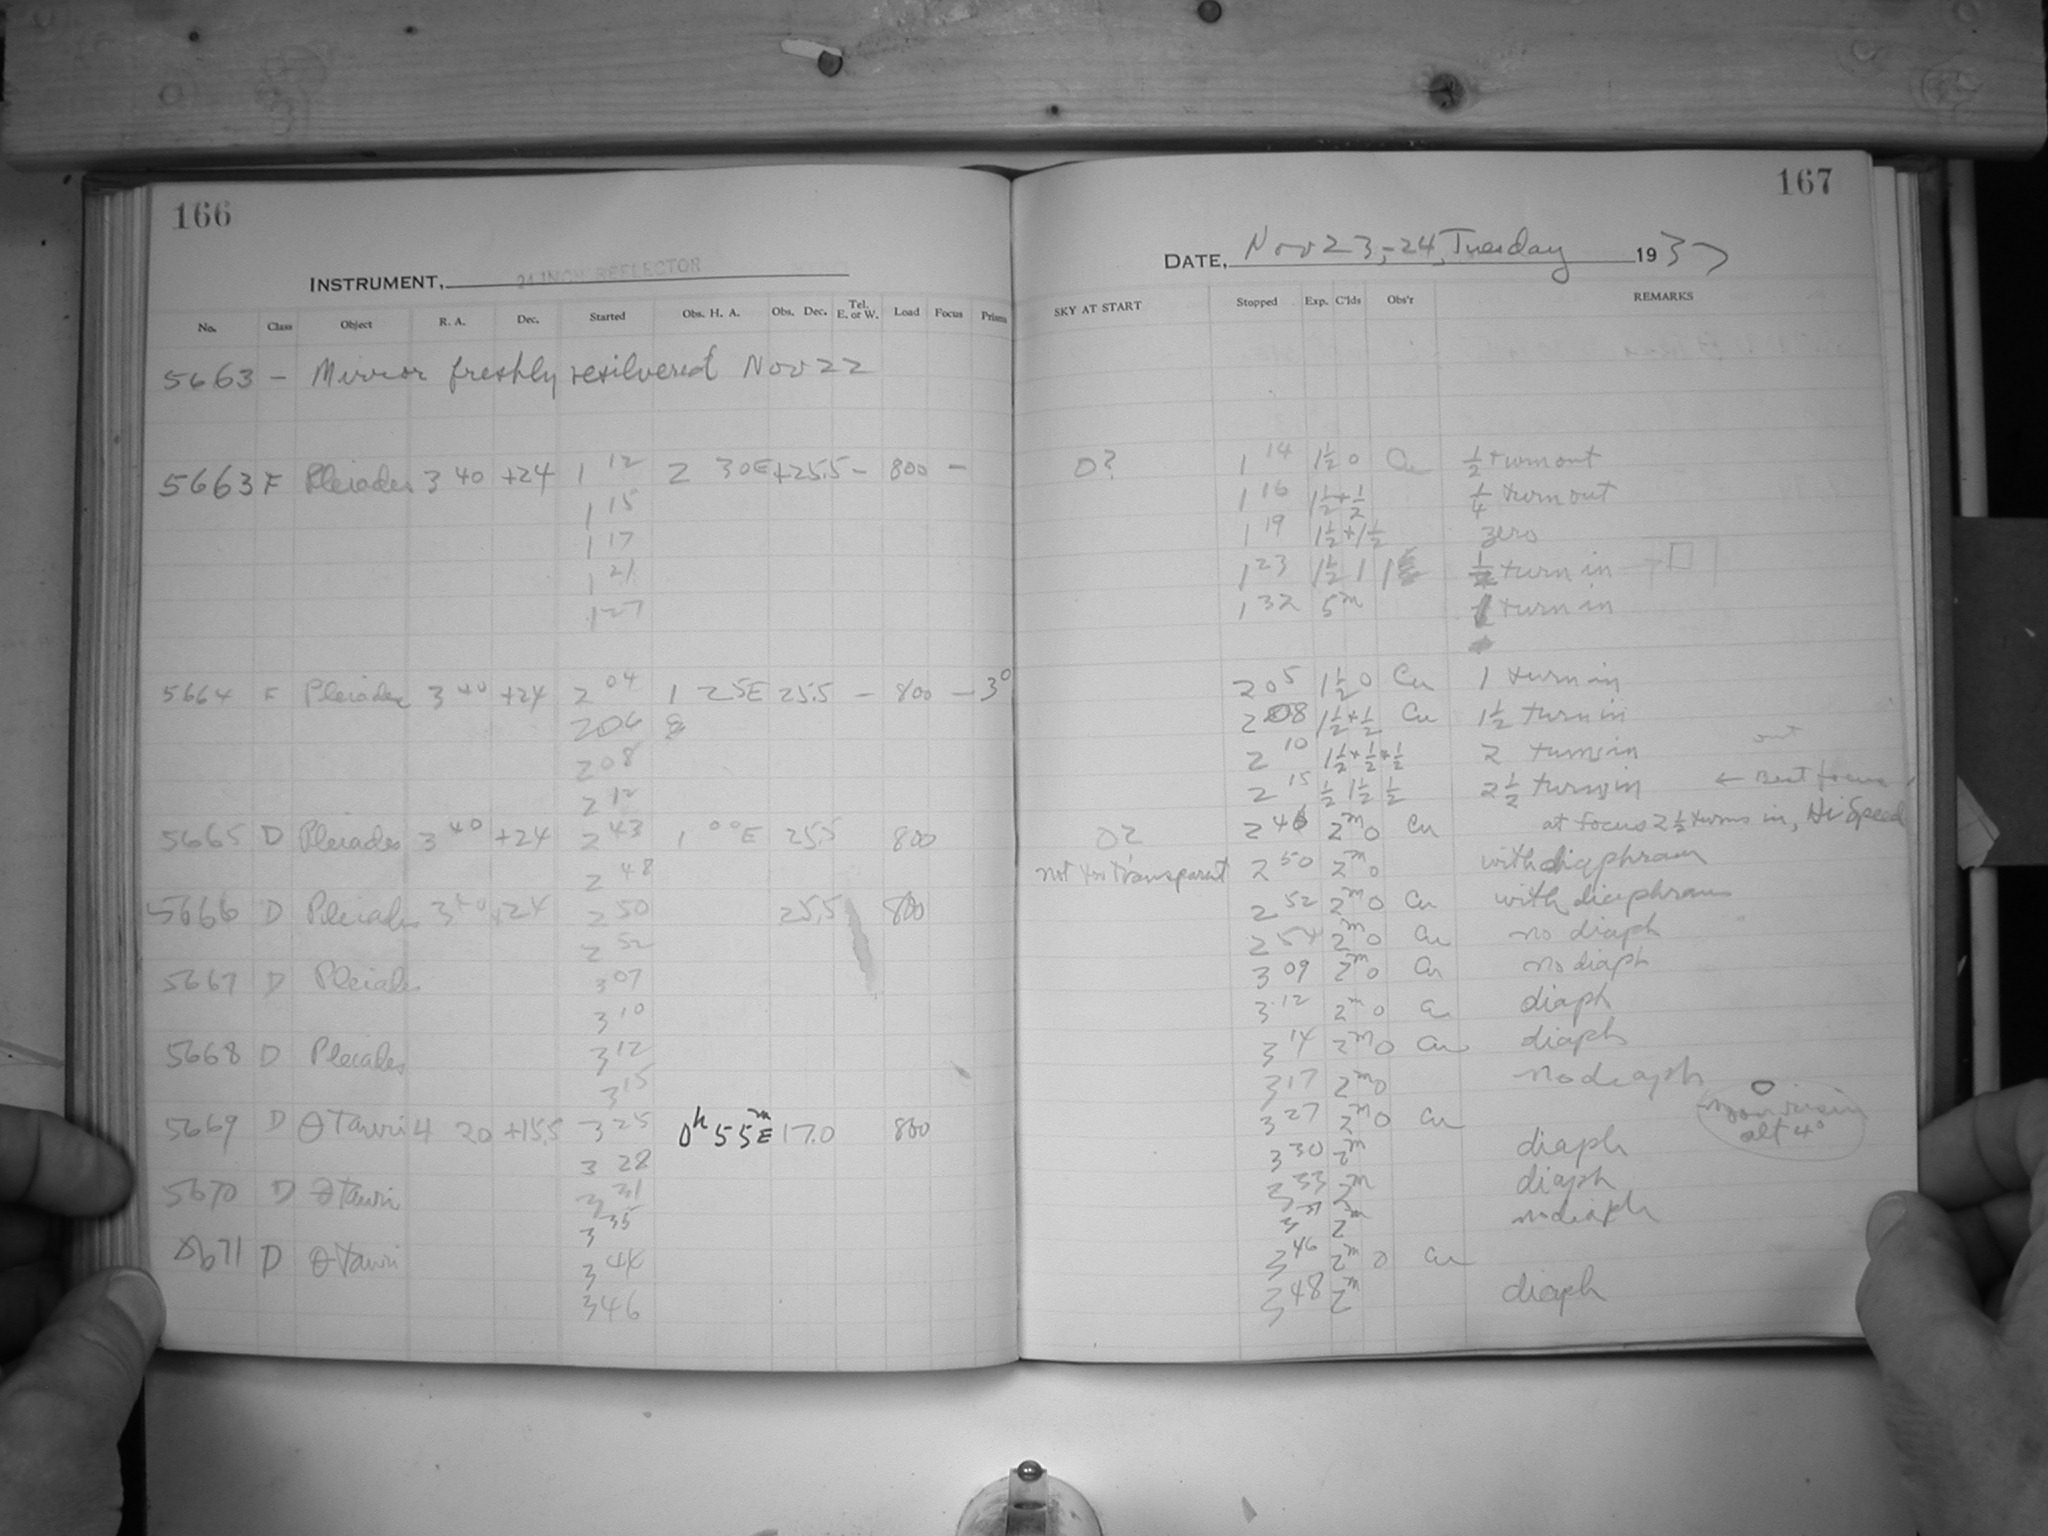 166
INSTRUMENT, 24 INCH REFLECTOR
No. Class Object R. A. Dec. Started Obs. H. A. Obs. Dec. Tel. E. or W. Load Focus Prism
5663 - Mirror freshly resilvered Nov 22
5663 F Pleiades 3 40 +24 1 12 2 30E +25.5 - 800 -
1 15
1 17
1 21
1 27
5664 F Pleiades 3 40 +24 2 04 1 25E 25.5 - 800 - 3°
2 06
2 08
2 12
5665 D Pleiades 3 40 +24 2 43 1 00E 25.5 800
2 48
5666 D Pleiades 3 40 +24 2 50 25.5 800
2 52
5667 D Pleiades 3 07
3 10
5668 D Pleiades 3 12
3 15
5669 D θ Tauri 4 20 +15.5 3 25 0h 55m E 17.0 800
3 28
5670 D θ Tauri 3 31
3 35
5671 D θ Tauri 3 44
3 46
167
DATE, Nov 23,-24, Tuesday 1937
SKY AT START Stopped Exp. C'lds Obs'r REMARKS
0? 1 14 1½ 0 Cu ½ turn out
1 16 1½+½ ¼ turn out
1 19 1½+1½ zero
1 23 1½ 1 1 turn in
1 32 5m turn in
2 05 1½ 0 Cu 1 turn in
2 08 1½+½ Cu 1½ turn in
2 10 1½+½+½ 2 turns in out
2 15 ½ 1½ ½ 2½ turns in ← Best focus
0? 2 46 2m 0 Cu at focus 2½ turns in, Hi Speed
not too transparent 2 50 2m 0 with diaphram
2 52 2m 0 Cu with diaphram
2 54 2m 0 Cu no diaph
3 09 2m 0 Cu no diaph
3 12 2m 0 Cu diaph
3 14 2m 0 Cu diaph
3 17 2m 0 no diaph
3 27 2m 0 Cu moon rising alt 4°
3 30 2m diaph
3 33 2m diaph
3 37 2m no diaph
3 46 2m 0 Cu
3 48 2m diaph